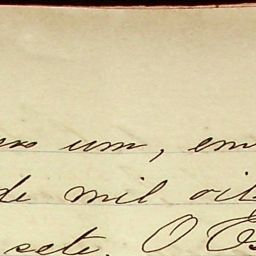 um, em
de mil oit
sete. O Es